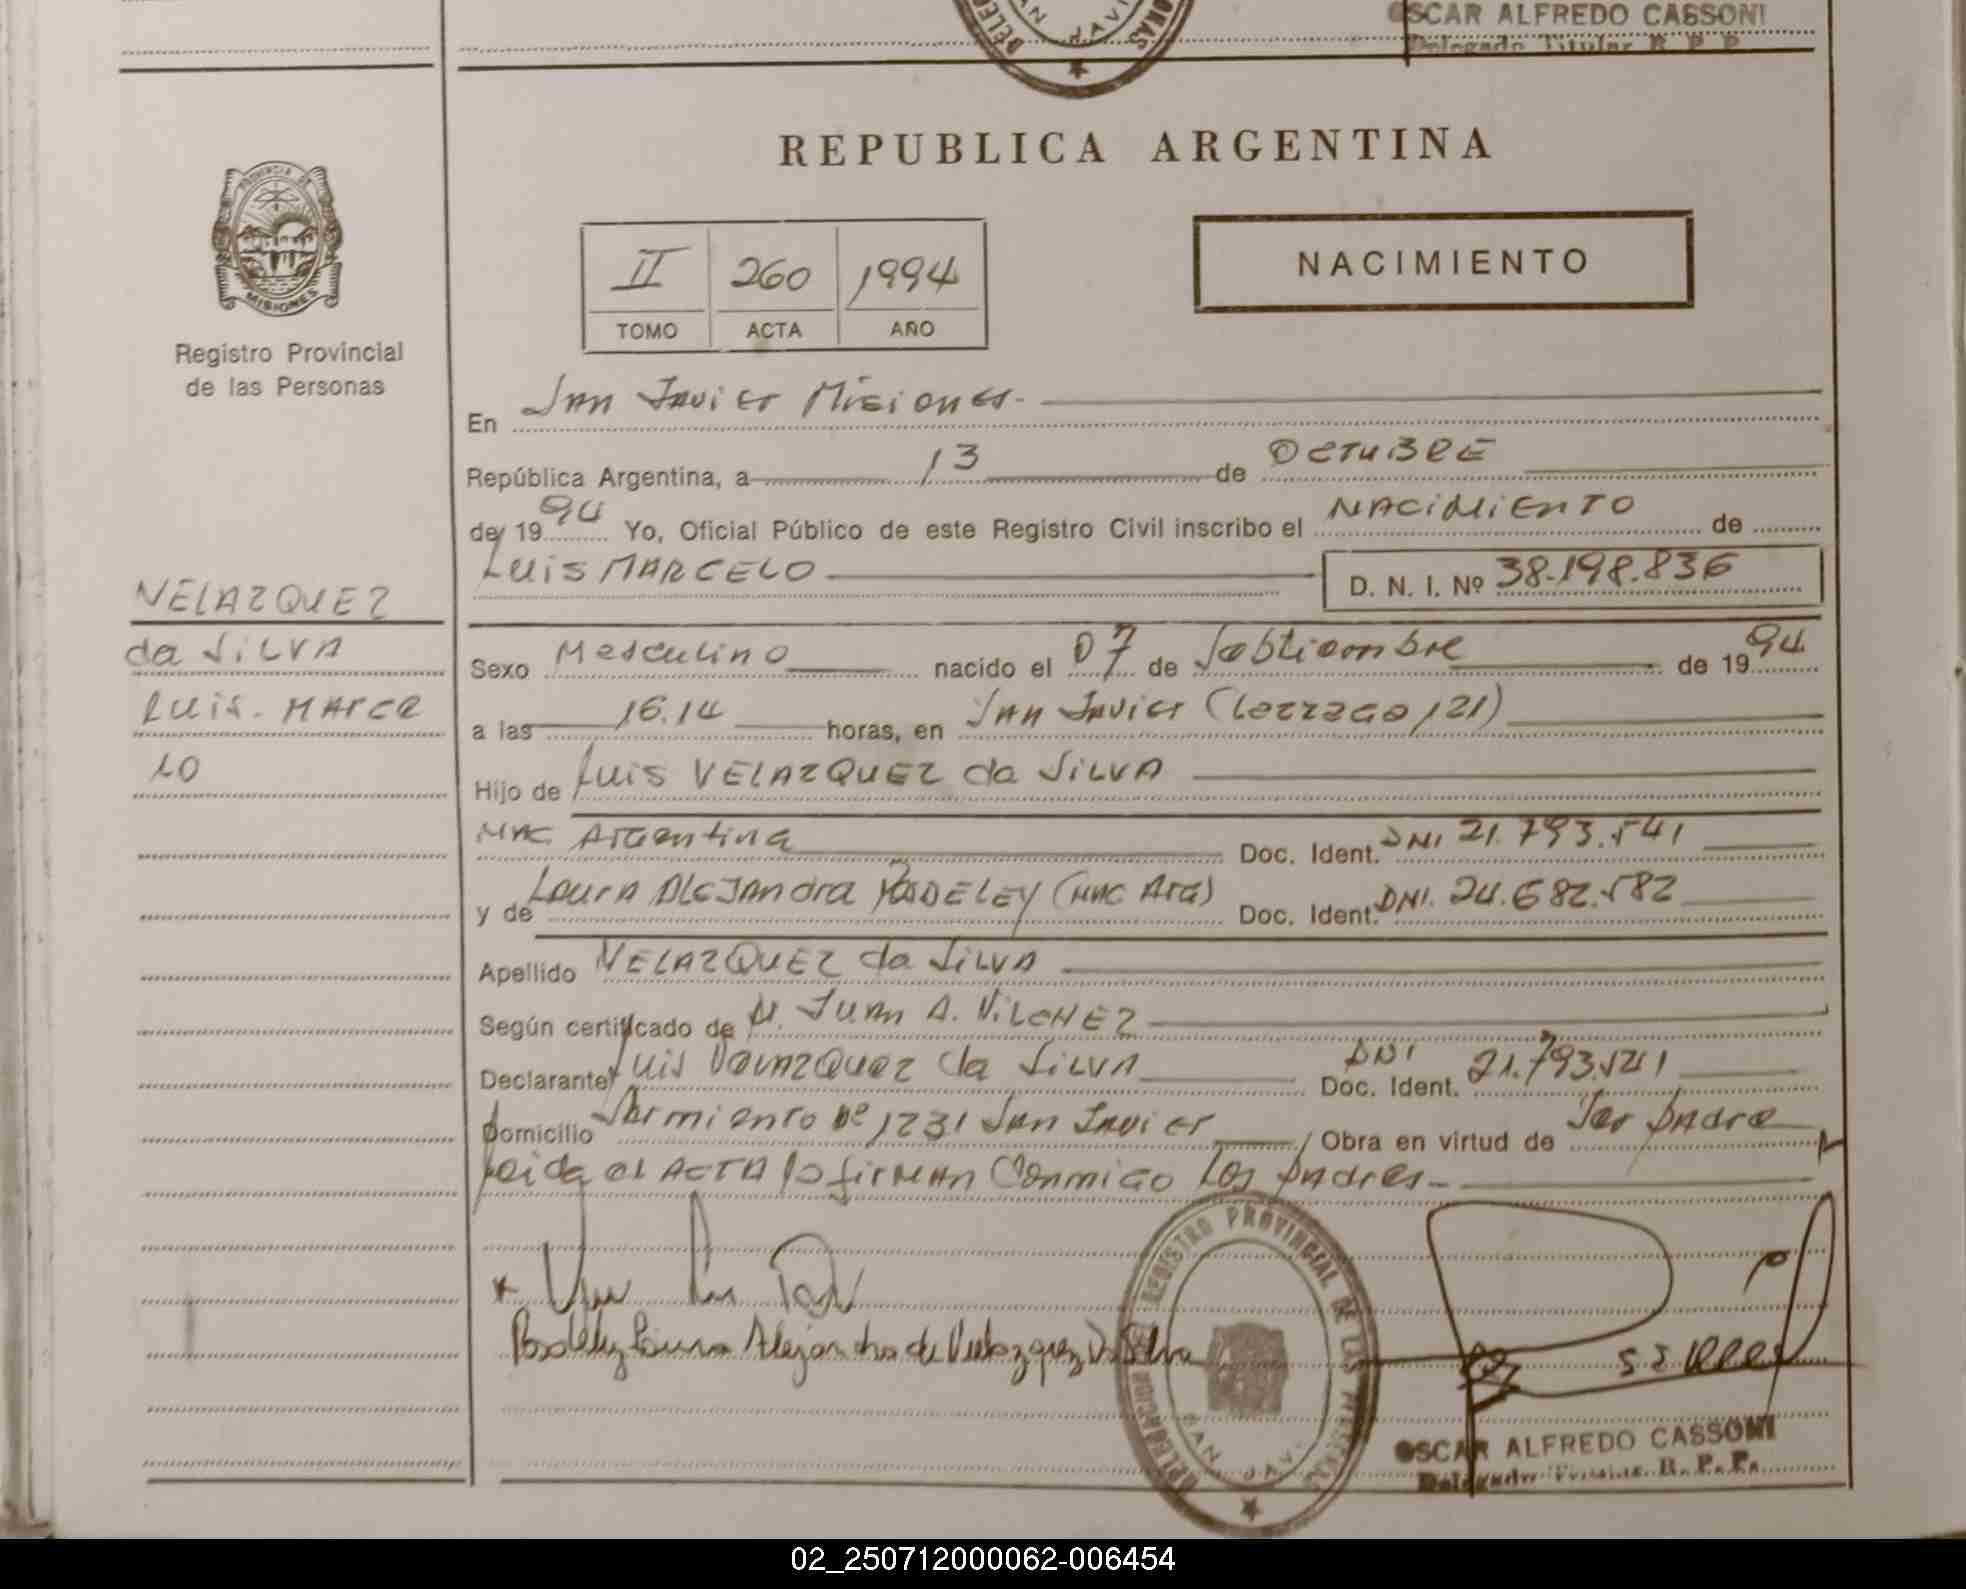 OSCAR ALFREDO CASSONI
Delegado Titular R. P. P.
REPUBLICA ARGENTINA
PROVINCIA DE
MISIONES
Registro Provincial
de las Personas
II 260 1994
TOMO ACTA AÑO
NACIMIENTO
En San Javier Misiones.-
República Argentina, a 13 de OCTUBRE
de 1994 Yo, Oficial Público de este Registro Civil inscribo el NACIMIENTO de
Luis MARCELO D. N. I. Nº 38.198.836
VELAZQUEZ
da SILVA
Luis. MARCE
LO
Sexo Masculino nacido el 07 de Septiembre de 1994
a las 16.14 horas, en SAN Javier (       121)
Hijo de Luis VELAZQUEZ da SILVA
Nac Argentina Doc. Ident. DNI 21.793.541
y de Laura ALEJANdra POSDELEY (Nac Arg) Doc. Ident. DNI. 24.682.582
Apellido VELAZQUEZ da SILVA
Según certificado de Dr. JUAN A. VILCHEZ
Declarante Luis VELAZQUEZ da SILVA DNI Doc. Ident. 21.793.541
Domicilio Sarmiento Nº 1231 San Javier Obra en virtud de Ser Padre
Leida el ACTA la firman Conmigo Los Padres.-
Posdeley Laura Alejandra de Velazquez Da Silva
DELEGACION REGISTRO PROVINCIAL DE LAS PERSONAS
SAN JAV.
OSCAR ALFREDO CASSONI
Delegado Titular R. P. P.
02_250712000062-006454